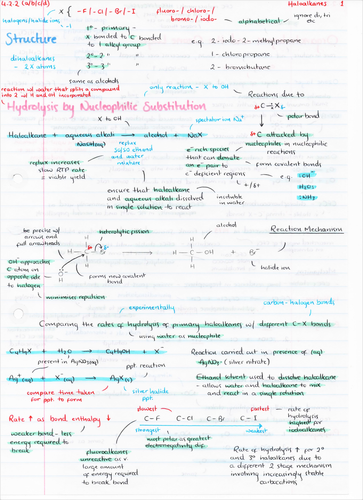 4.2.2 (a/b/c/d)
Haloalkanes 1
X { -F / -Cl / -Br / -I
fluoro- / chloro- /
bromo- / iodo-
alphabetical
ignore di, tri
etc
halogen/halide ions
Structure
1° - primary -
X bonded to C bonded
to 1 alkyl group
2° - 2 "
3° - 3 "
same as alcohols
dihaloalkanes
- 2X atoms
e.g. 2 - iodo - 2 - methylpropane
1 - chloropropane
2 - bromobutane
reaction of water that splits a compound
into 2 w/ H and OH incorporated
only reaction - X to OH
Reactions due to
Hydrolysis by Nucleophilic Substitution
X to OH
polar bond
Haloalkane + aqueous alkali → alcohol + NaX
NaOH(aq)
spectator are Na+
C attacked by
nucleophiles in nucleophilic
reactions
reflux
50/50 ethanol
and water
mixture
e- rich species
that can donate
an e- pair to
e- deficient regions
+ / δ+
form covalent bonds
e.g. :OH-
H2O:
:NH3
reflux increases
slow RTP rate
= viable yield
ensure that haloalkane
and aqueous alkali dissolved
in single solution to react
insoluble
in water
be precise w/
arrows and
put arrowheads
heterolytic fission
alcohol
Reaction Mechanism
OH- approaches
C atom on
opposite side
to halogen
forms new covalent
bond
halide ion
minimises repulsion
experimentally
carbon-halogen bonds
Comparing the rates of hydrolysis of primary haloalkanes w/ different C-X bonds
using water as nucleophile
C4H9X + H2O → C4H9OH + X-
present in AgNO3(aq)
ppt. reaction
Ag+(aq) + X-(aq) → AgX(s)
compare time taken
for ppt to form
silver halide
ppt.
Reaction carried out in presence of (aq)
AgNO3 - (silver nitrate)
Ethanol solvent used to dissolve haloalkane
- allows water and haloalkane to mix
and react in a single solution
Rate ↑ as bond enthalpy ↓
slowest
fastest
C-F C-Cl C-Br C-I
strongest
weakest
weaker bond - less
energy required to
break
most polar as greatest
electronegativity diff.
- rate of
hydrolysis
highest for
iodoalkanes
fluoroalkanes
unreactive as v
large amount
of energy required
to break bond
Rate of hydrolysis ↑ for 2°
and 3° haloalkanes due to
a different 2 stage mechanism
involving increasingly stable
carbocations